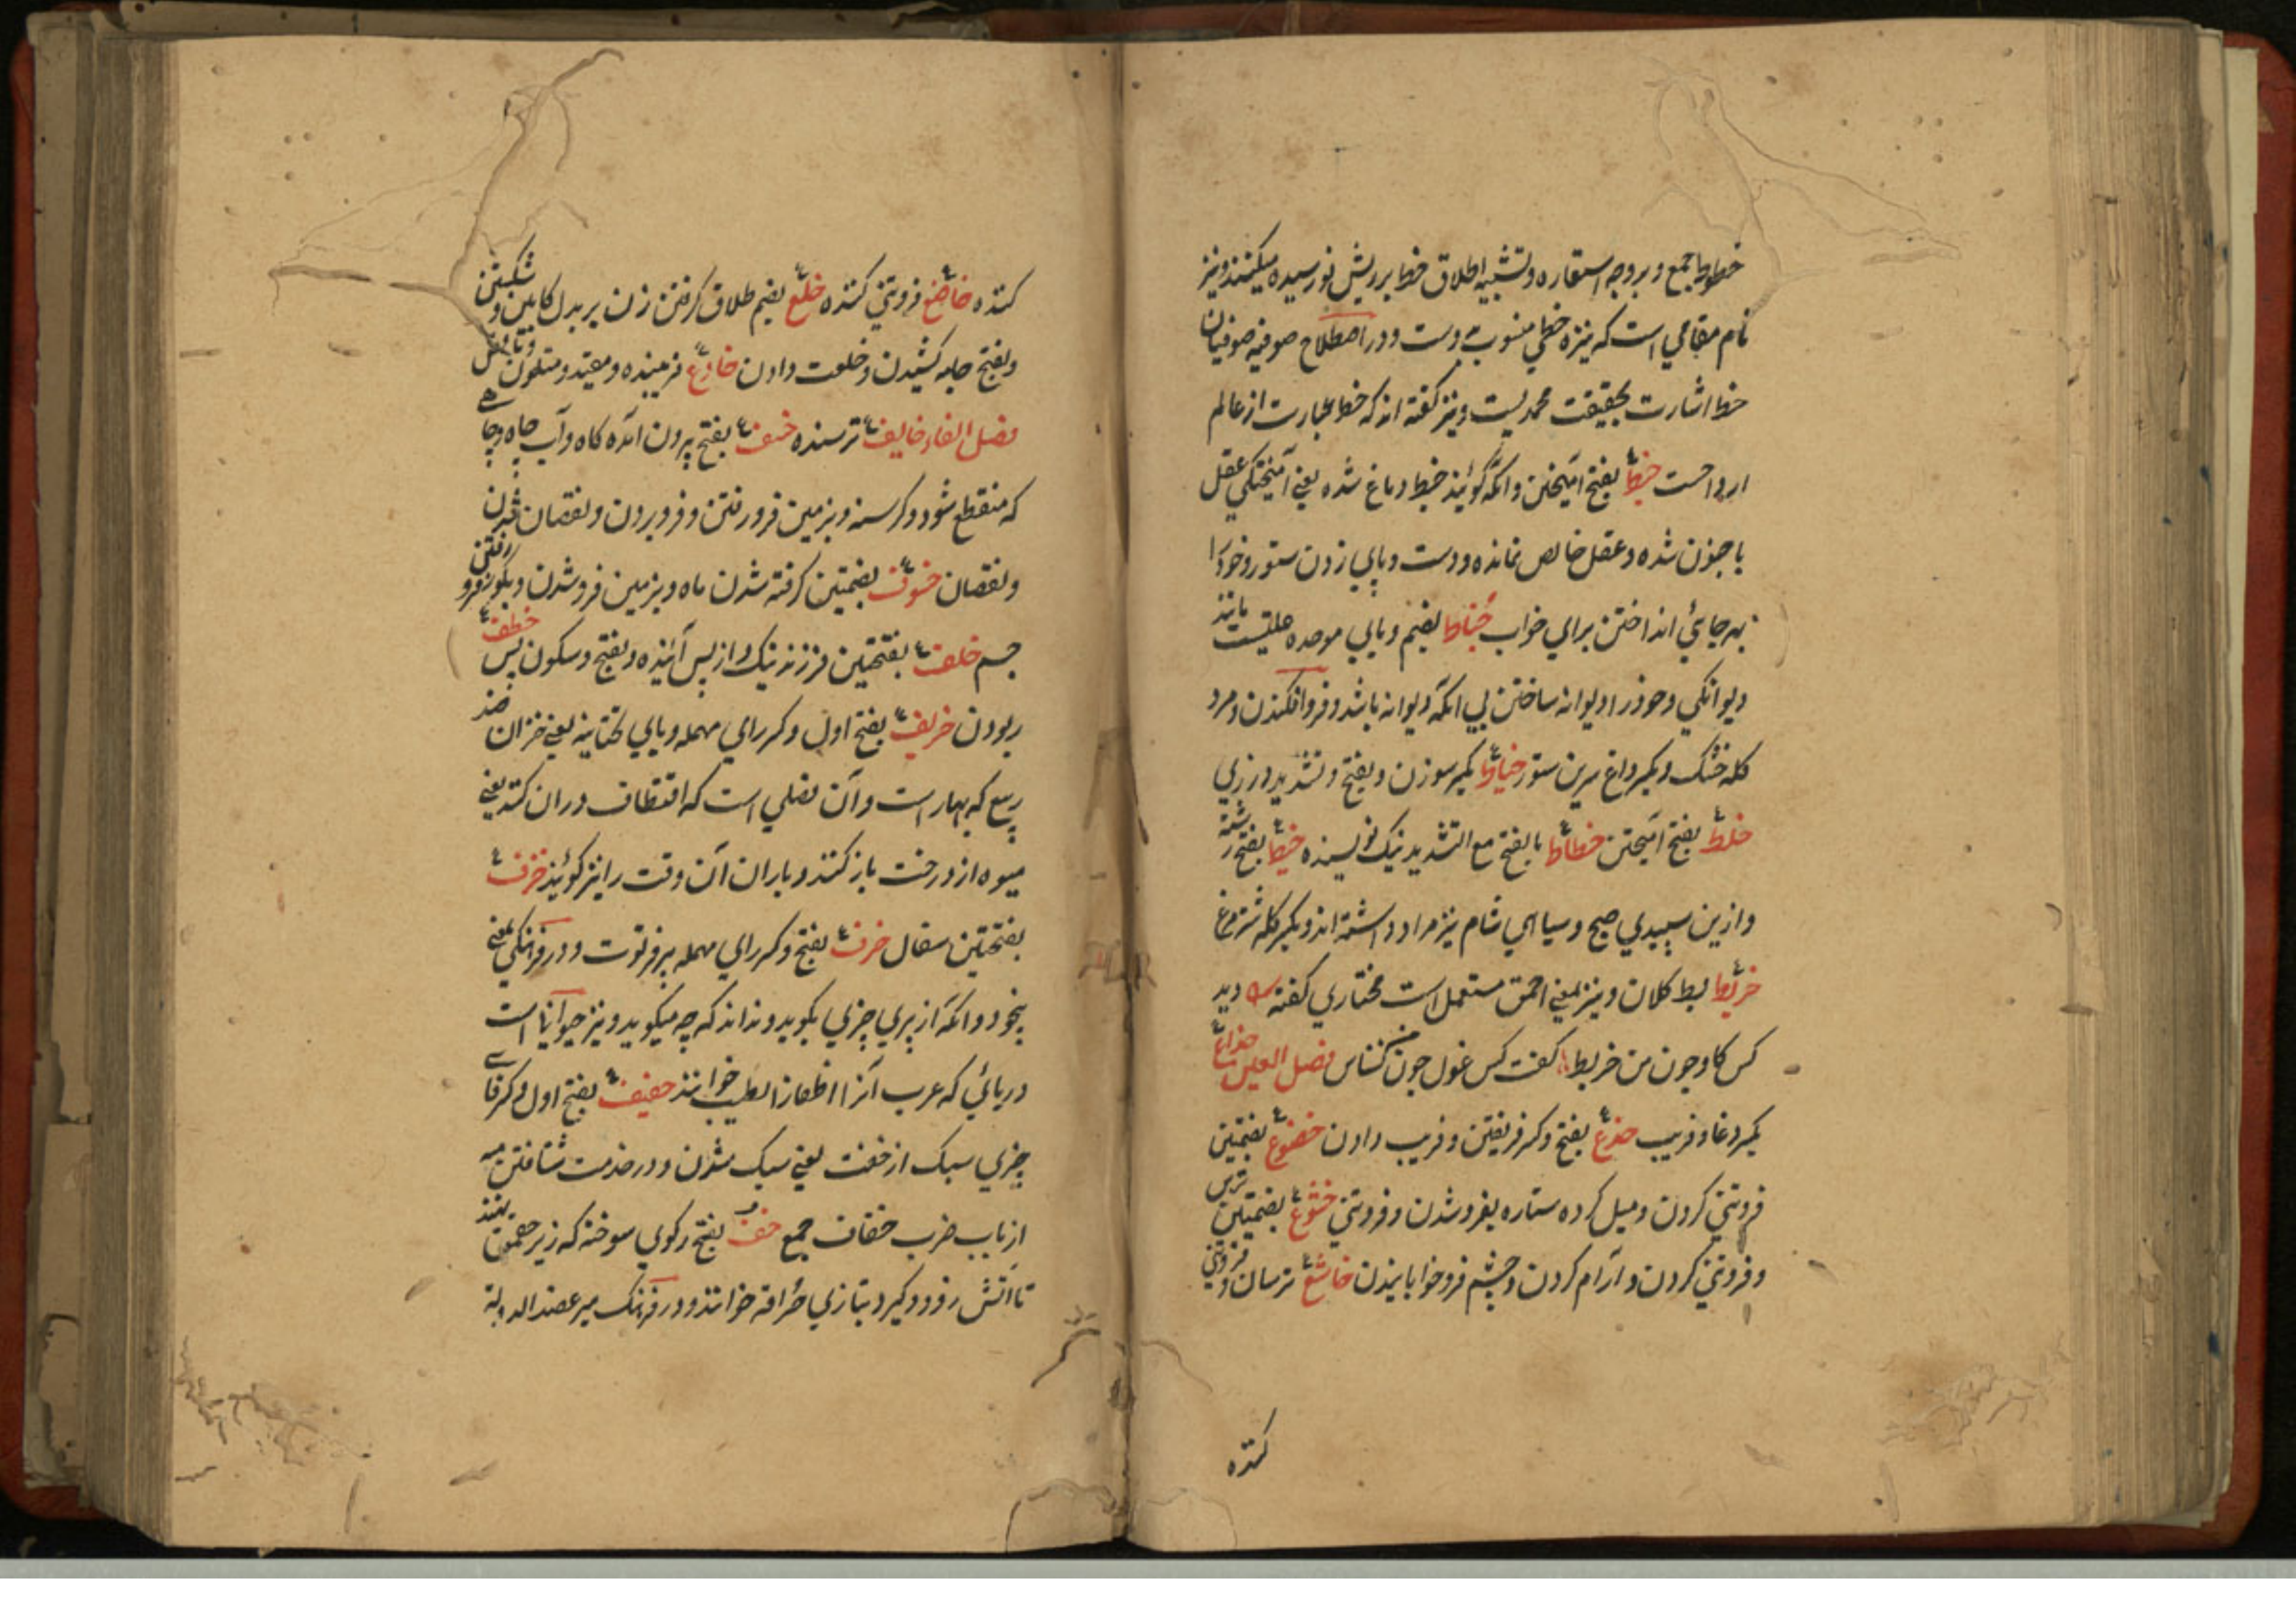 خطوط جمع و بروجه استعاره و تشبیه اطلاق خط بر ریش نورسیده میکنند و نیز
نام مقامی است که نیزه خطی منسوب بوست و در اصطلاح صوفیه صوفیان
خط اشارت بحقیقت محمدیست و نیز گفته اند که خط عبارت از عالم
ارواحست خبط بفتح آمیختن و آنکه گویند خبط دماغ شده یعنی آمیختگی عقل
با جنون شده و عقل خالص نمانده و دست و پای زدن ستور و خود را
بهر جائی انداختن برای خواب خباط بضم و بای موحده علتیست مانند
دیوانگی و خود را دیوانه ساختن بی آنکه دیوانه باشد و فرو افکندن و مرد
کله خشک و بکسر داغ سرین ستور خیاط بکسر سوزن و بفتح و تشدید درزی
خلط بفتح آمیختن خطاط بالفتح مع التشدید نیک نویسنده خیط بفتح رشته
و ازین سپیدی صبح و سیاهی شام نیز مراد داشته اند و بکسر کله شترمرغ
خربط بط کلان و نیز بمعنی احمق مستعمل است مختاری گفته دید
کس کاو چون من خربط گفت کس غول چون من کناس فصل العین خداع
بکسر دغا و فریب خدع بفتح و کسر فریفتن و فریب دادن خضوع بضمتین
فروتنی کردن و میل کرده ستاره بغرو شدن و فروتنی خشوع بضمتین ترس
و فروتنی کردن و آرام کردن و چشم فرو خوابانیدن خاشع ترسان و فروتنی
کننده
کننده خاضع فروتنی کننده خلع بضم طلاق گرفتن زن بر بدل کابین و شکستن
و بفتح جامه کشیدن و خلعت دادن خادع فریبنده و مقید و متلون
فصل الفاء خایف ترسنده خسف بفتح بیرون آمده گاه و آب چاه و جا
که منقطع شود و گرسنه و بزمین فرو رفتن و فرو بردن و نقصان شدن
و نقصان خسوف بضمتین گرفته شدن ماه و بزمین فرو شدن و بگور فرو رفتن
چشم خلف بفتحتین فرزند نیک و از پس آینده و بفتح و سکون پس خطف
ربودن خریف بفتح اول و کسر رای مهمله و یای تحتانیه یعنی خزان ضد
ربیع که بهار است و آن فصلی است که اقتطاف در آن کنند یعنی
میوه از درخت باز کنند و باران آن وقت را نیز گویند خزف
بفتحتین سفال خرف بفتح و کسر رای مهمله پیر فرتوت و در فرهنگی بمعنی
بیخود و آنکه از پیری چیزی بگوید و نداند که چه میگوید و نیز حیوانی است
دریائی که عرب آنرا اظفار الطیب خوانند خفیف بفتح اول و کسر فا
چیزی سبک از خفت یعنی سبک شدن و در خدمت شتافتن
از باب ضرب خفاف جمع خف بفتح رکوی سوخته که زیر چقماق نهند
تا آتش رو زود گیرد بتازی حراقه خوانند و در فرهنگ میر عضد الدوله